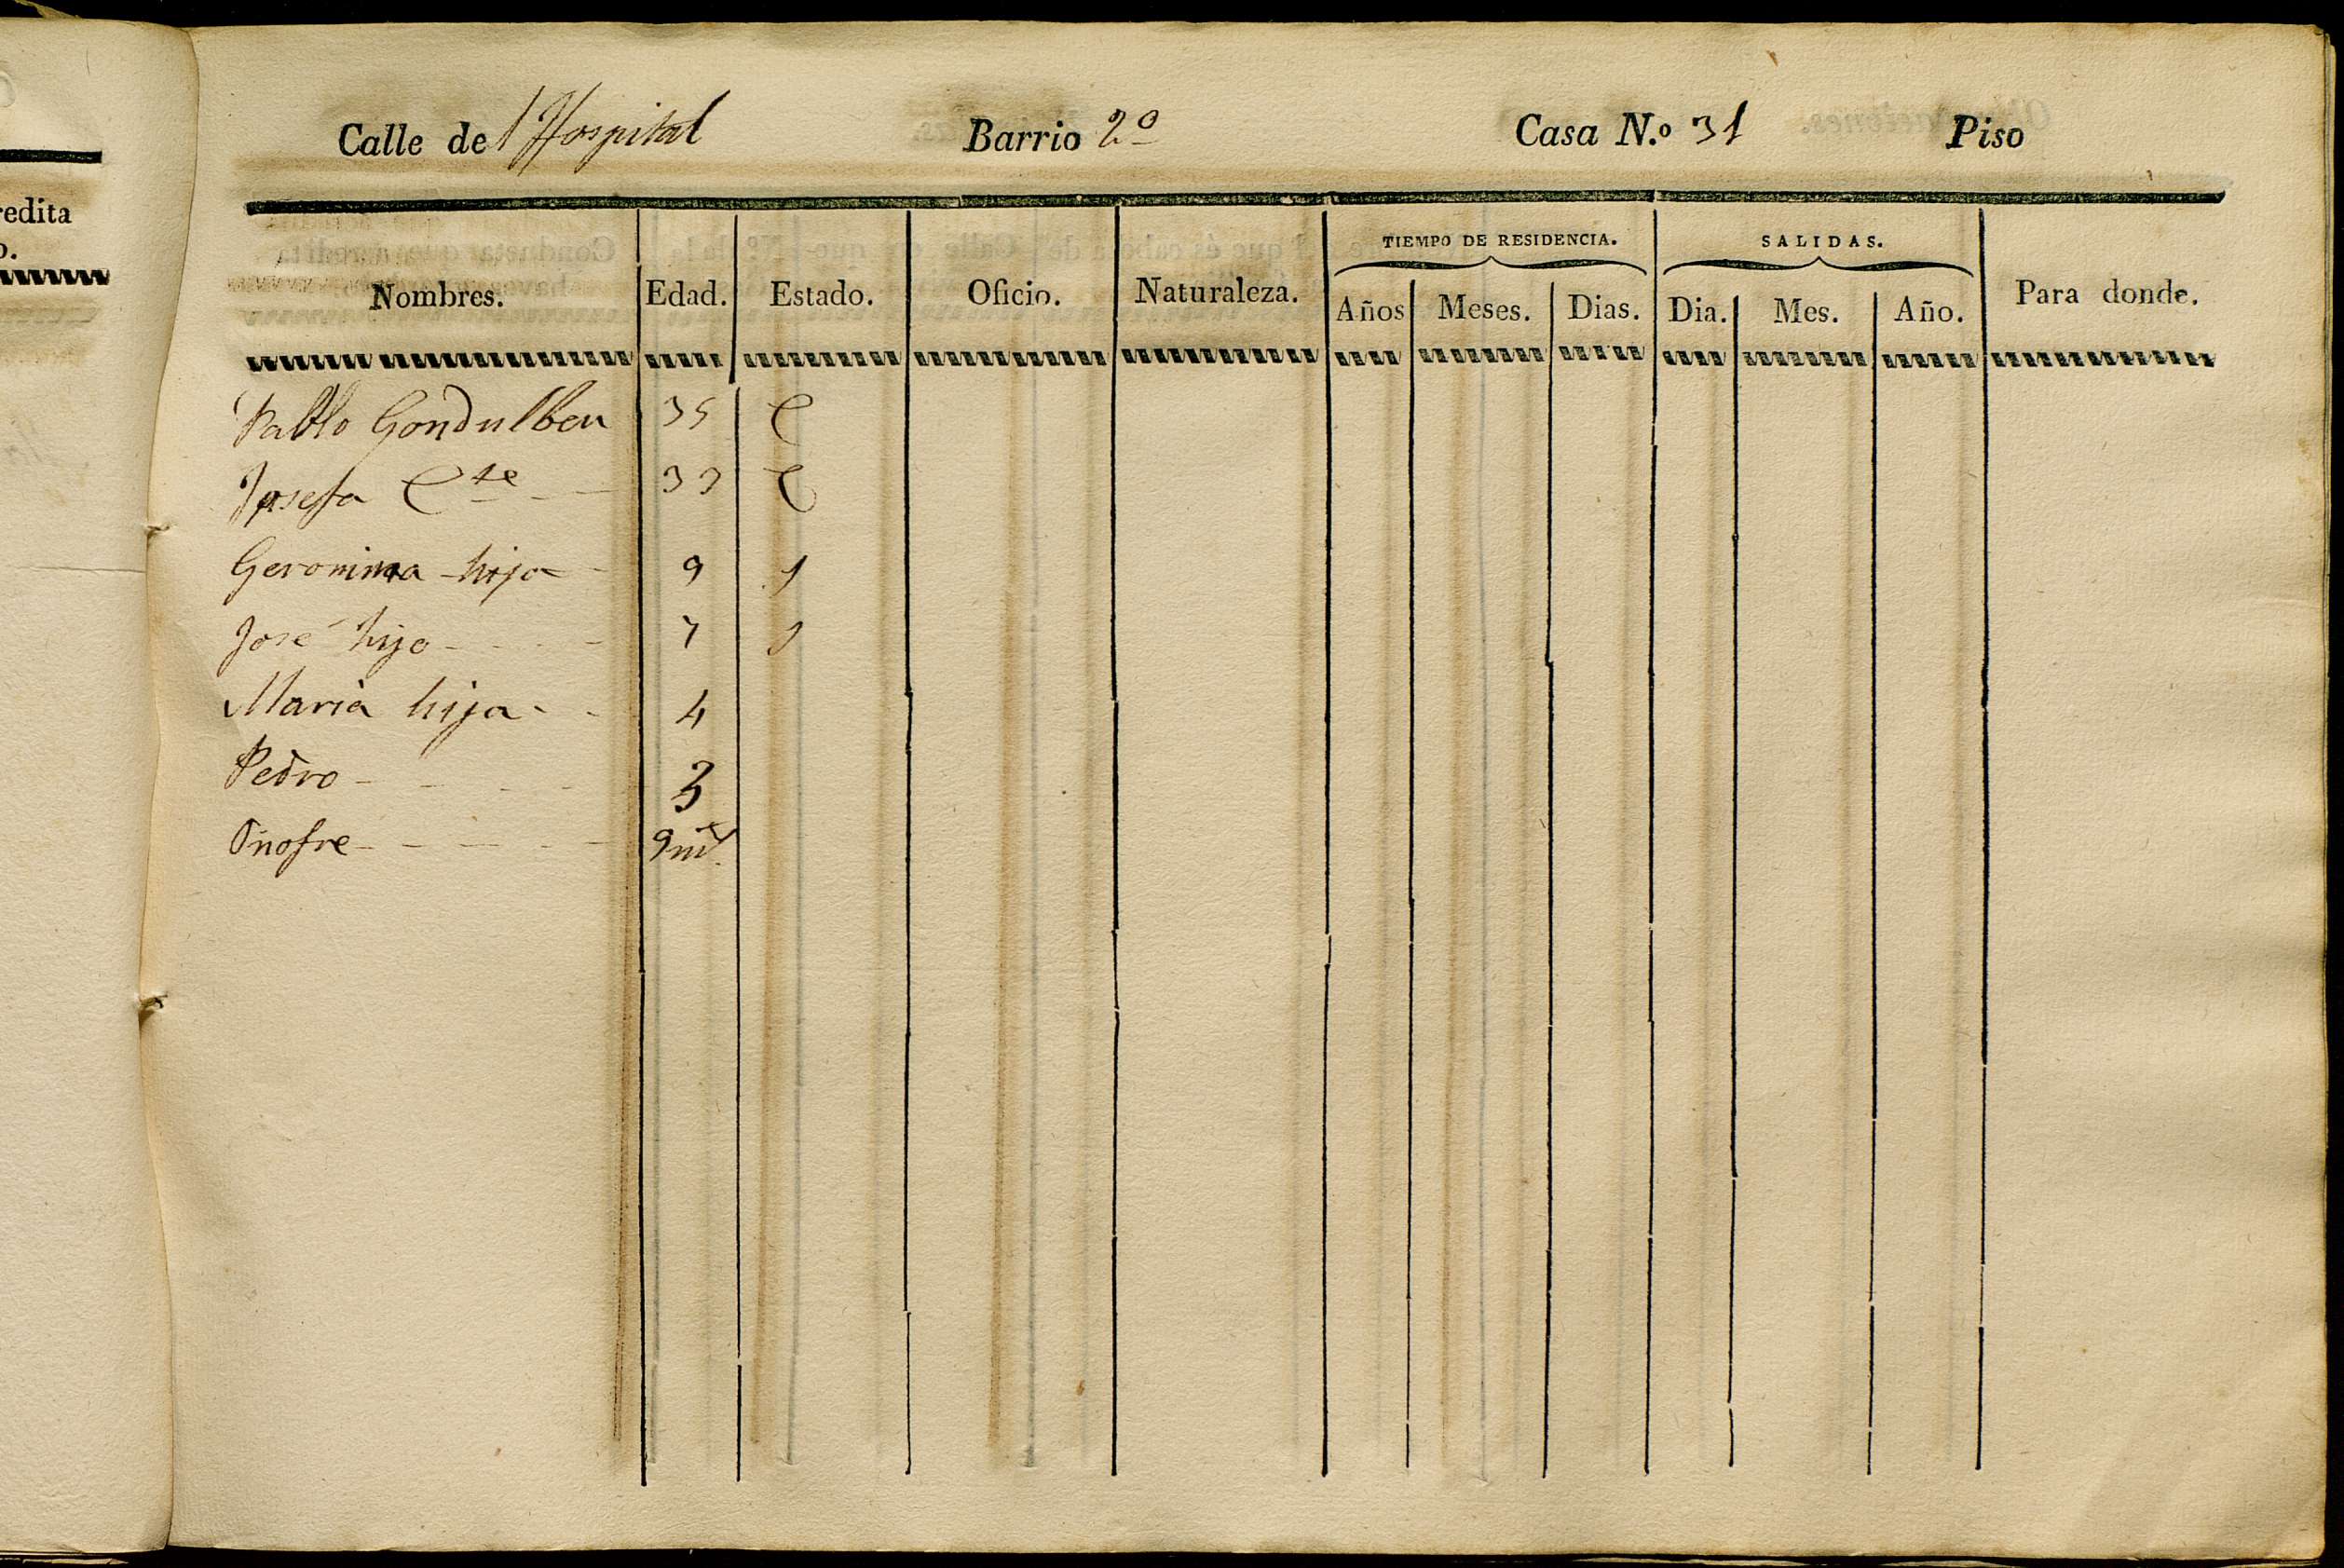 redita
o.
Calle del Hospital Barrio 2º Casa N.º 31 Piso
TIEMPO DE RESIDENCIA. SALIDAS.
Nombres. Edad. Estado. Oficio. Naturaleza. Años Meses. Dias. Dia. Mes. Año. Para donde.
Pablo Gondulbeu 35 C
Josefa Cte 33 C
Geronima hija 9 S
José hijo 7 S
Maria hija 4
Pedro 3
Onofre 9 ms